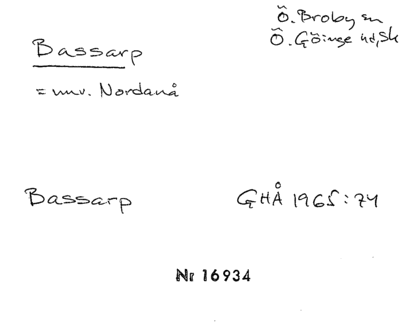 Bassarp
Ö. Broby sn
Ö. Göinge hd, Sk
= nuv. Nordanå
Bassarp GHÅ 1965:74
Nr 16934